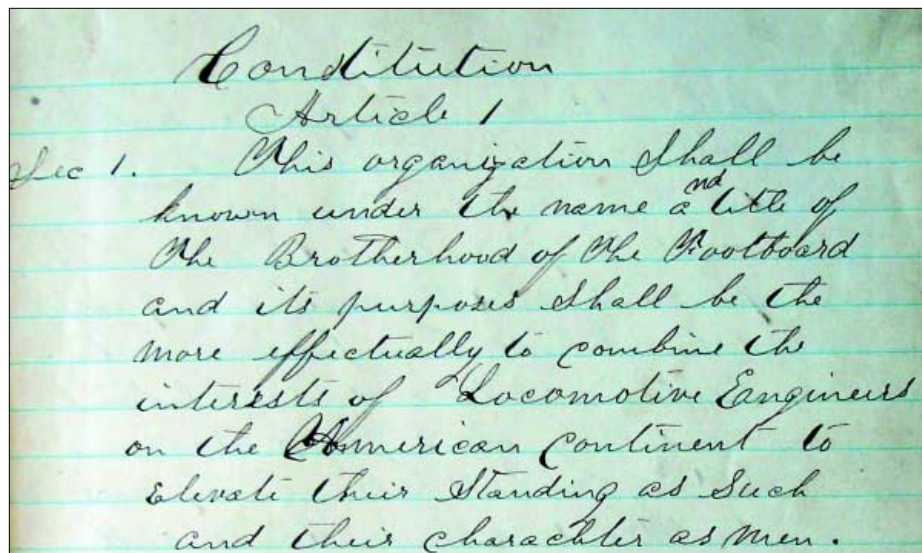 Constitution
Article 1
Sec 1. This organization Shall be
known under the name and title of
The Brotherhood of The Footboard
and its purposes Shall be the
more effectually to combine the
interests of Locomotive Engineers
on the American Continent to
Elevate their Standing as Such
and their charachter as Men.